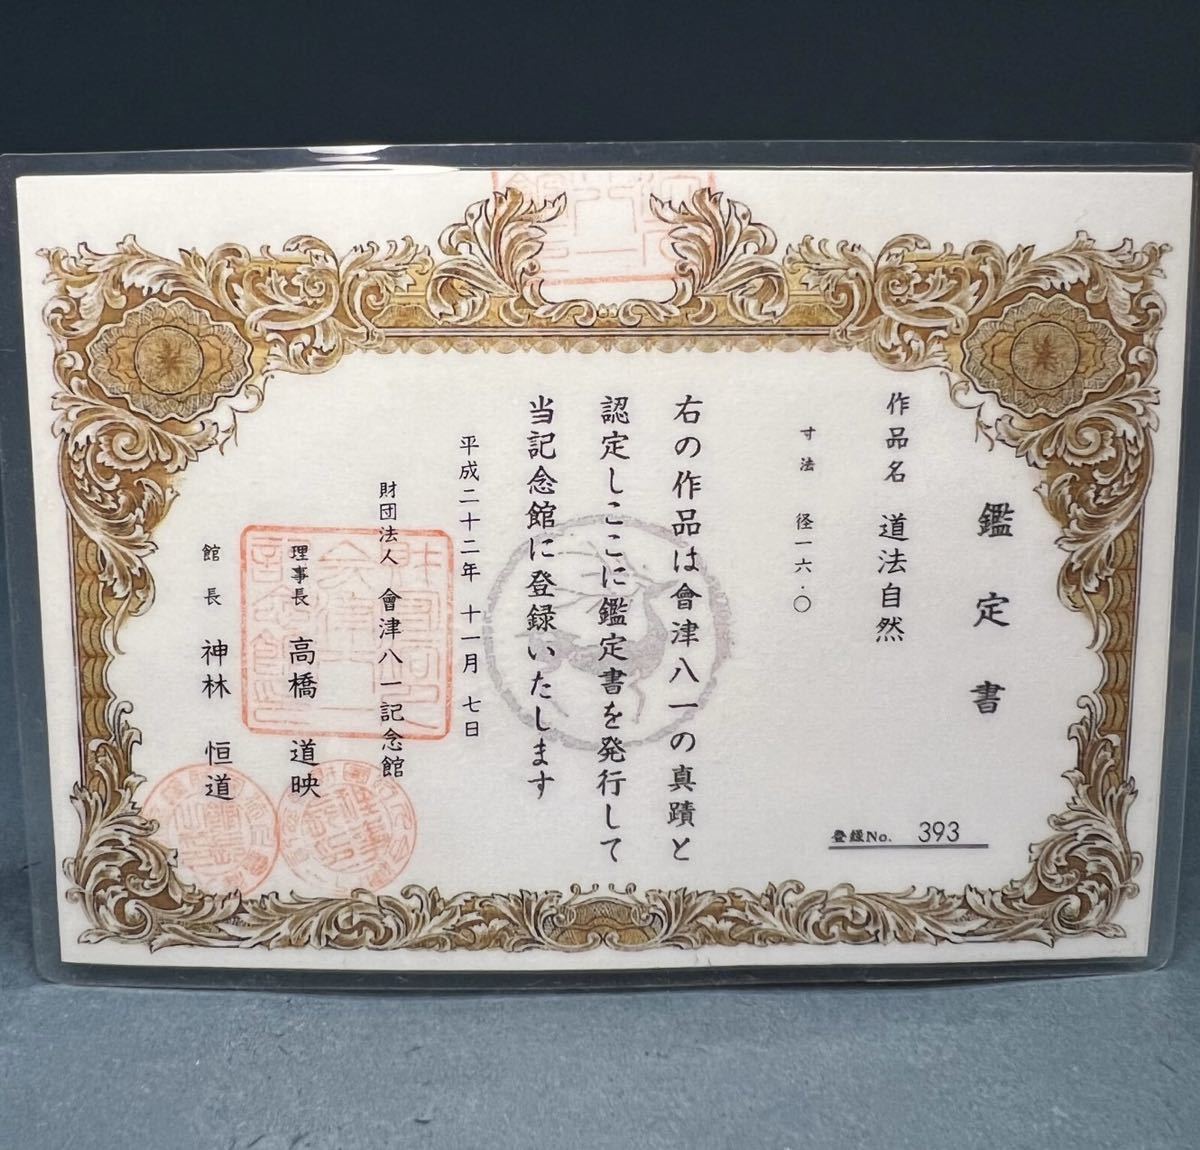 鑑定書
作品名 道法自然
寸法 径一六・〇
右の作品は會津八一の真蹟と
認定しここに鑑定書を発行して
当記念館に登録いたします
平成二十二年 十一月 七日
財団法人 會津八一記念館
理事長 高橋 道映
館長 神林 恒道
登録No. 393